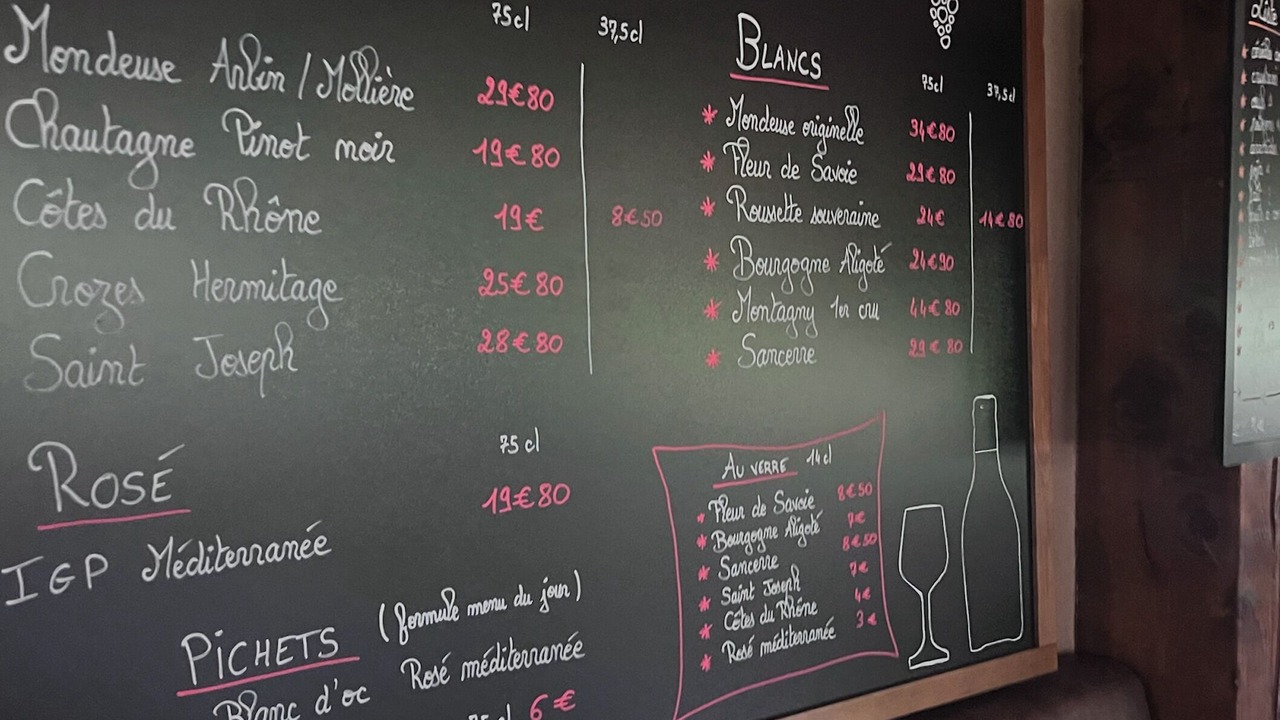 75cl 37,5cl
Mondeuse Arlin / Mollière 29€80
Chautagne Pinot noir 19€80
Côtes du Rhône 19€ 8€50
Crozes Hermitage 25€80
Saint Joseph 28€80
ROSÉ 75 cl
IGP Méditerranée 19€80
PICHETS (formule menu du jour)
Blanc d'oc Rosé méditerranée
75cl 6€
BLANCS
75cl 37,5cl
* Mondeuse originelle 34€80
* Fleur de Savoie 29€80
* Roussette souveraine 24€ 14€80
* Bourgogne Aligoté 24€90
* Montagny 1er cru 44€80
* Sancerre 29€80
AU VERRE 14cl
* Fleur de Savoie 8€50
* Bourgogne Aligoté 7€
* Sancerre 8€50
* Saint Joseph 7€
* Côtes du Rhône 4€
* Rosé méditerranée 3€